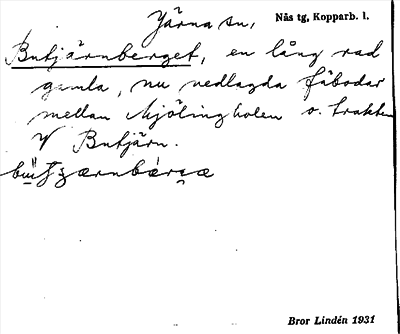 Järna sn, Nås tg, Kopparb. l.
Butjärnberget, en lång rad
gamla, nu nedlagda fäbodar
mellan o. trakten
V Butjärn.
Bror Lindén 1931